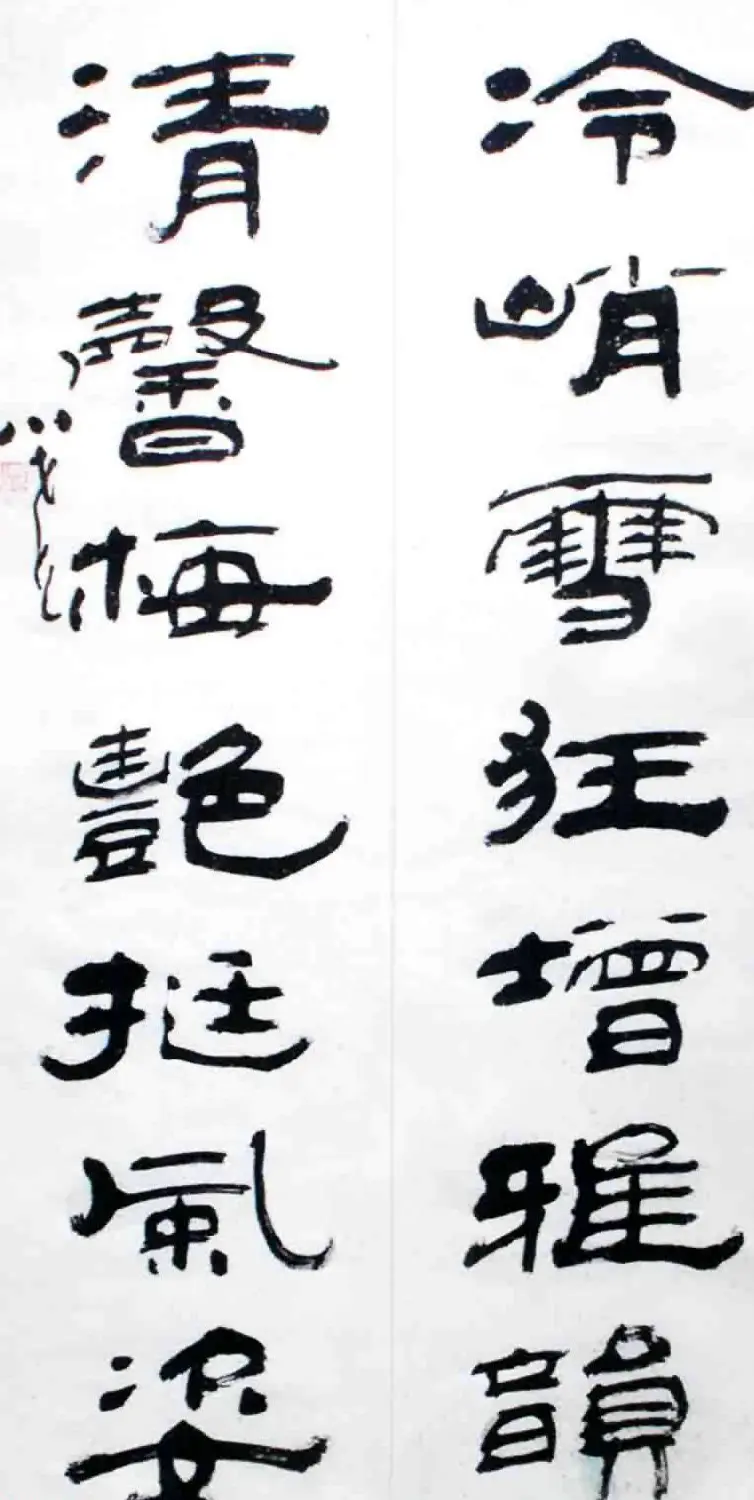 冷峭雪狂增雅韻
清馨梅艷挺風姿